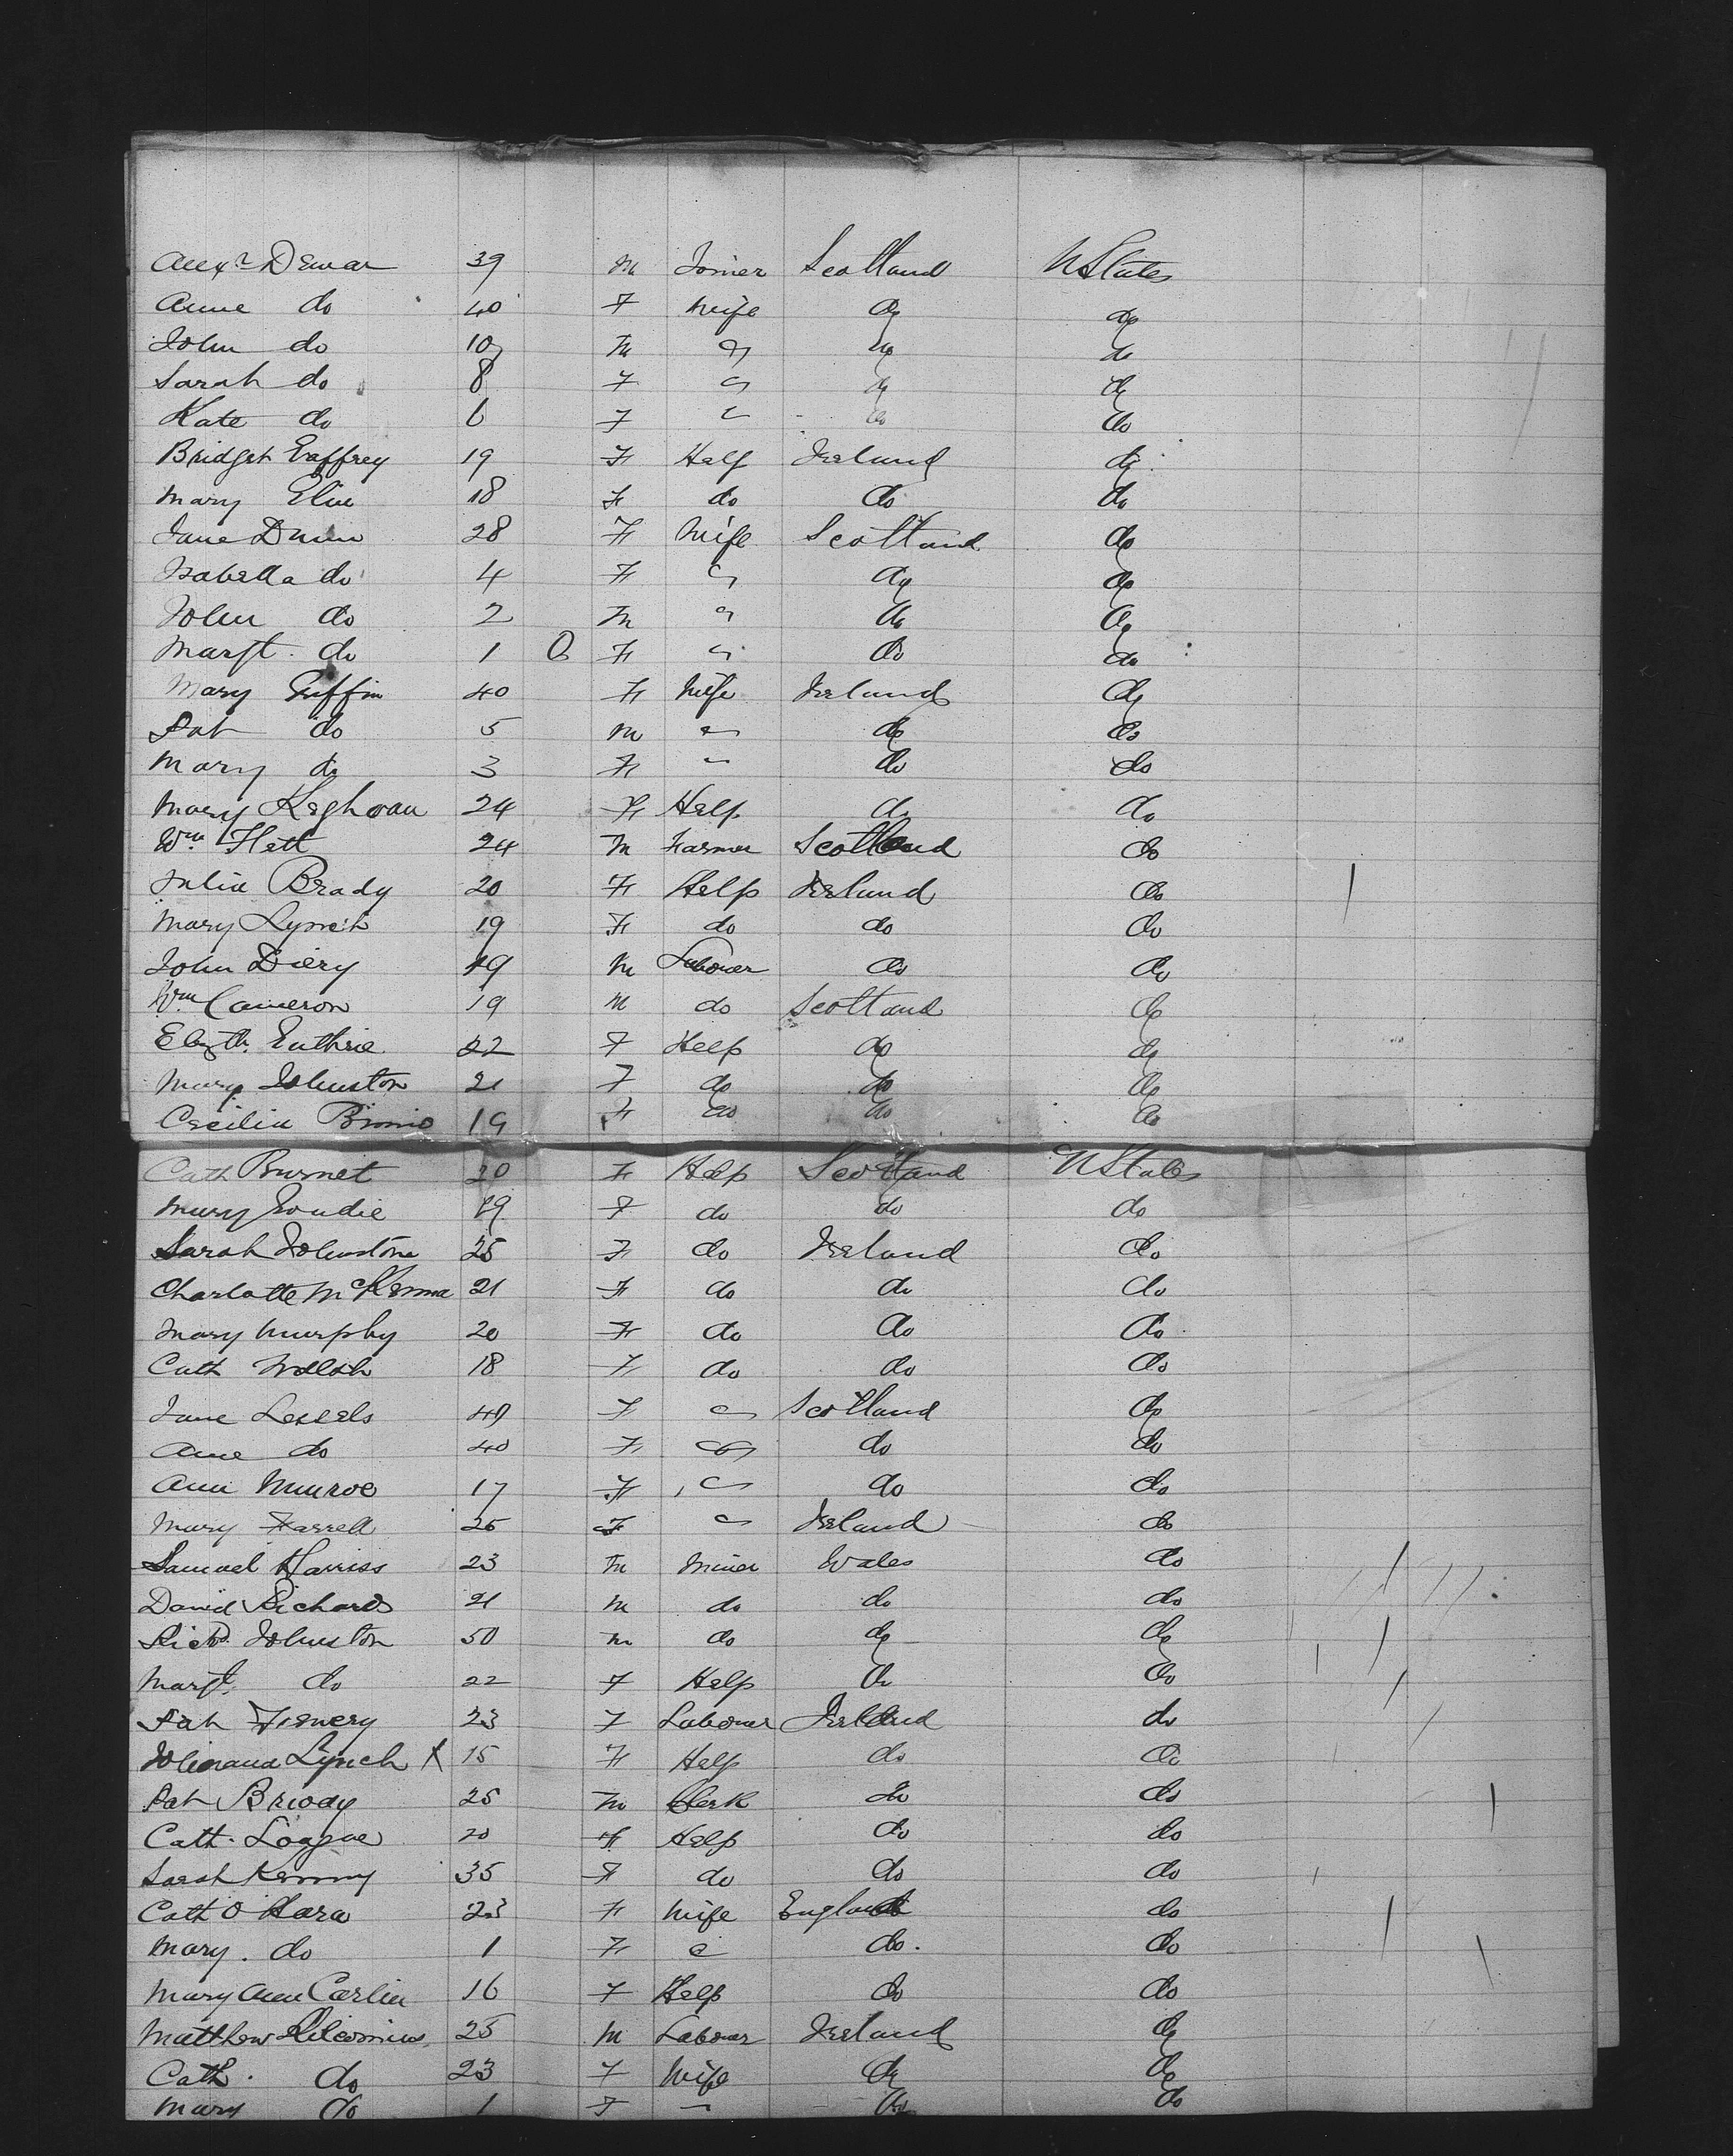 Alexr Dewar 39 M Joiner Scotland U States
Anne do 40 F Wife do do
John do 10 M " do do
Sarah do 8 F " do do
Kate do 6 F " do do
Bridget Gaffrey 19 F Help Ireland do
Mary 18 F do do do
Jane Dunn 28 F Wife Scotland do
Isabella do 4 F " do do
John do 2 M " do do
Margt. do 1 F " do do
Mary Griffin 40 F Wife Ireland do
Pat do 5 M " do do
Mary do 3 F " do do
Mary Keghoan 24 F Help do do
Wm Flett 24 M Farmer Scotland do
Julia Brady 20 F Help Ireland do
Mary Lynch 19 F do do do
John Diery 19 M Labourer do do
Wm Cameron 19 M do Scotland do
Elizth. Guthrie 22 F Help do do
Mary Johnston 21 F do do do
Cecilia Binnie 19 F do do do
Cath Burnet 20 F Help Scotland U States
Mary Goudie 19 F do do do
Sarah Johnstone 25 F do Ireland do
Charlotte McKenna 21 F do do do
Mary Murphy 20 F do do do
Cath Walsh 18 F do do do
Jane Lessels F " Scotland do
Ann do 40 F " do do
Ann Munroe 17 F " do do
Mary Farrell 25 F " Ireland do
Samuel Harriss 23 M Miner Wales do
David Richards 21 M do do do
Richd. Johnston 50 M do do do
Margt. do 22 F Help do do
Pat 23 F Labourer Ireland do
Lynch X 15 F Help do do
Pat Briody 25 M Clerk do do
Cath. Logue 20 F Help do do
Sarah Kenny 35 F do do do
Cath O Hara 23 F Wife England do
Mary. do 1 F " do. do
Mary Ann Carlin 16 F Help do do
Matthew 25 M Labourer Ireland do
Cath. do 23 F Wife do do
Mary do 1 F " do do